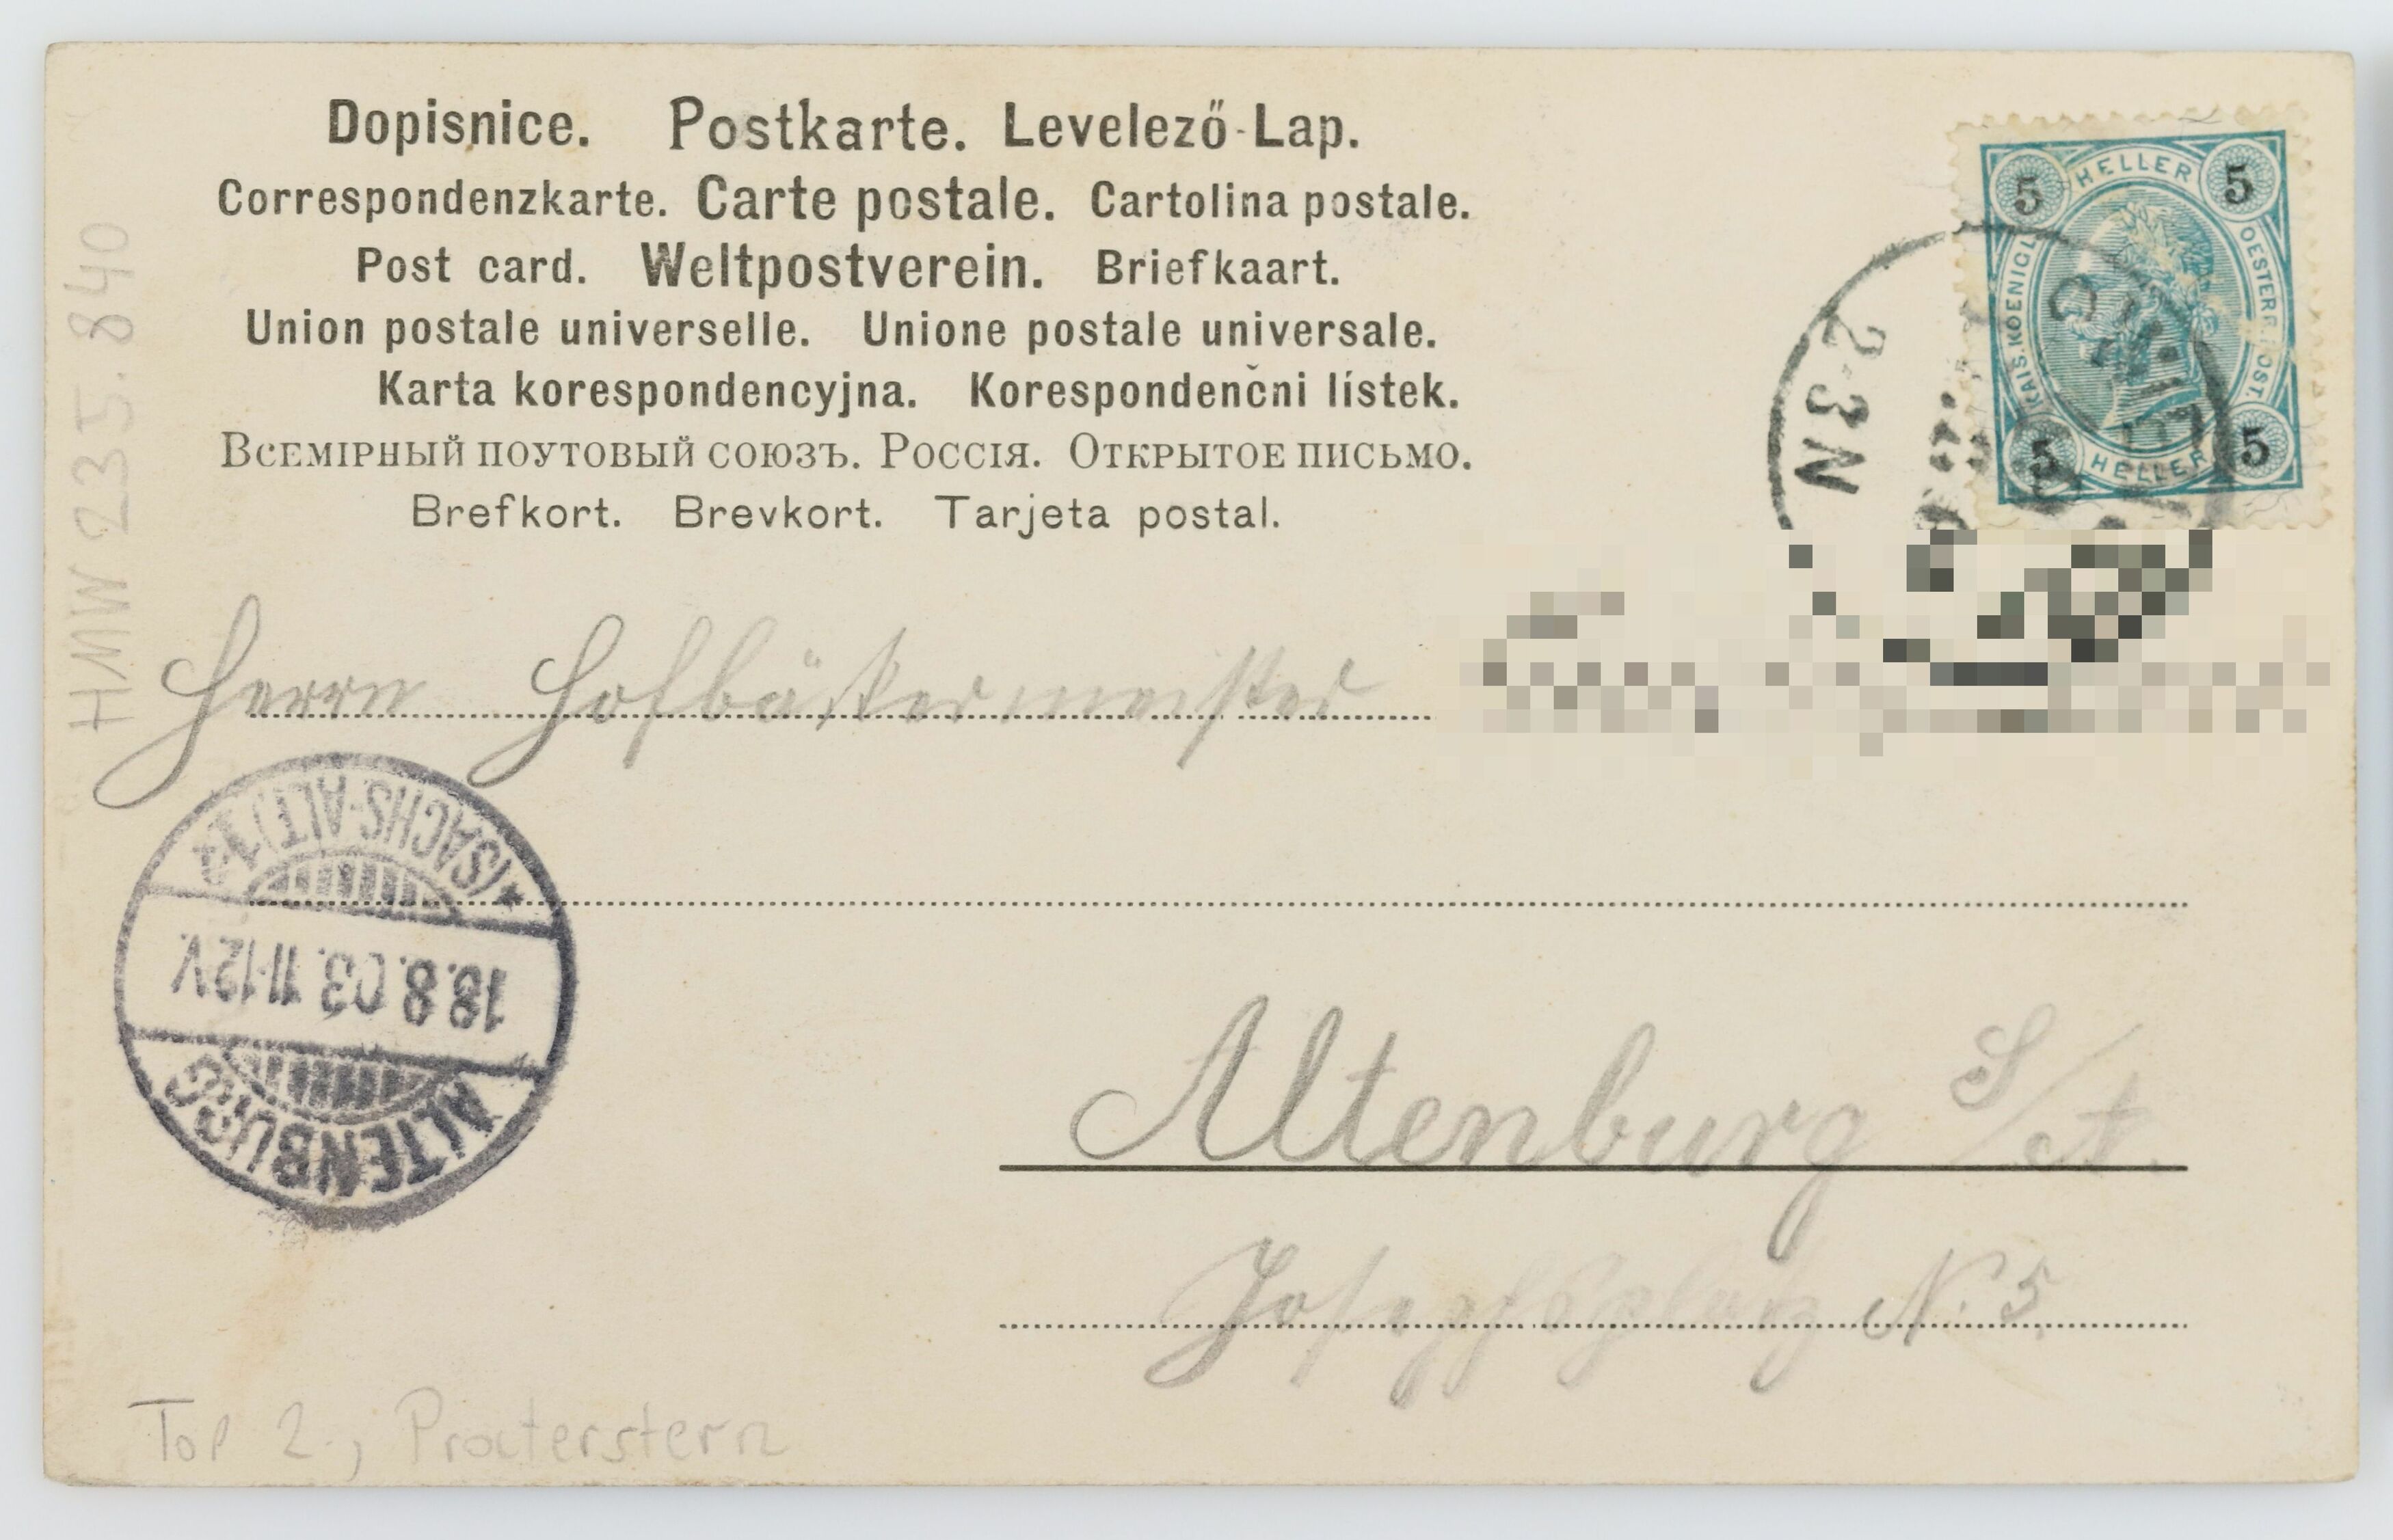 Dopisnice. Postkarte. Levelező-Lap.
Correspondenzkarte. Carte postale. Cartolina postale.
Post card. Weltpostverein. Briefkaart.
Union postale universelle. Unione postale universale.
Karta korespondencyjna. Korespondenčni lístek.
Всемірный поутовый союзъ. Россія. Открытое письмо.
Brefkort. Brevkort. Tarjeta postal.
HELLER
5 5
KAIS. KOENIGL. OESTERR. POST.
5 5
HELLER
2-3N
HMW 235.840
Herrn Hofbäkermeister
ALTENBURG
18.8.03. 11-12V.
(SACHS-ALT)
Altenburg S/A.
Josephsplatz N. 5.
Top 2., Praterstern